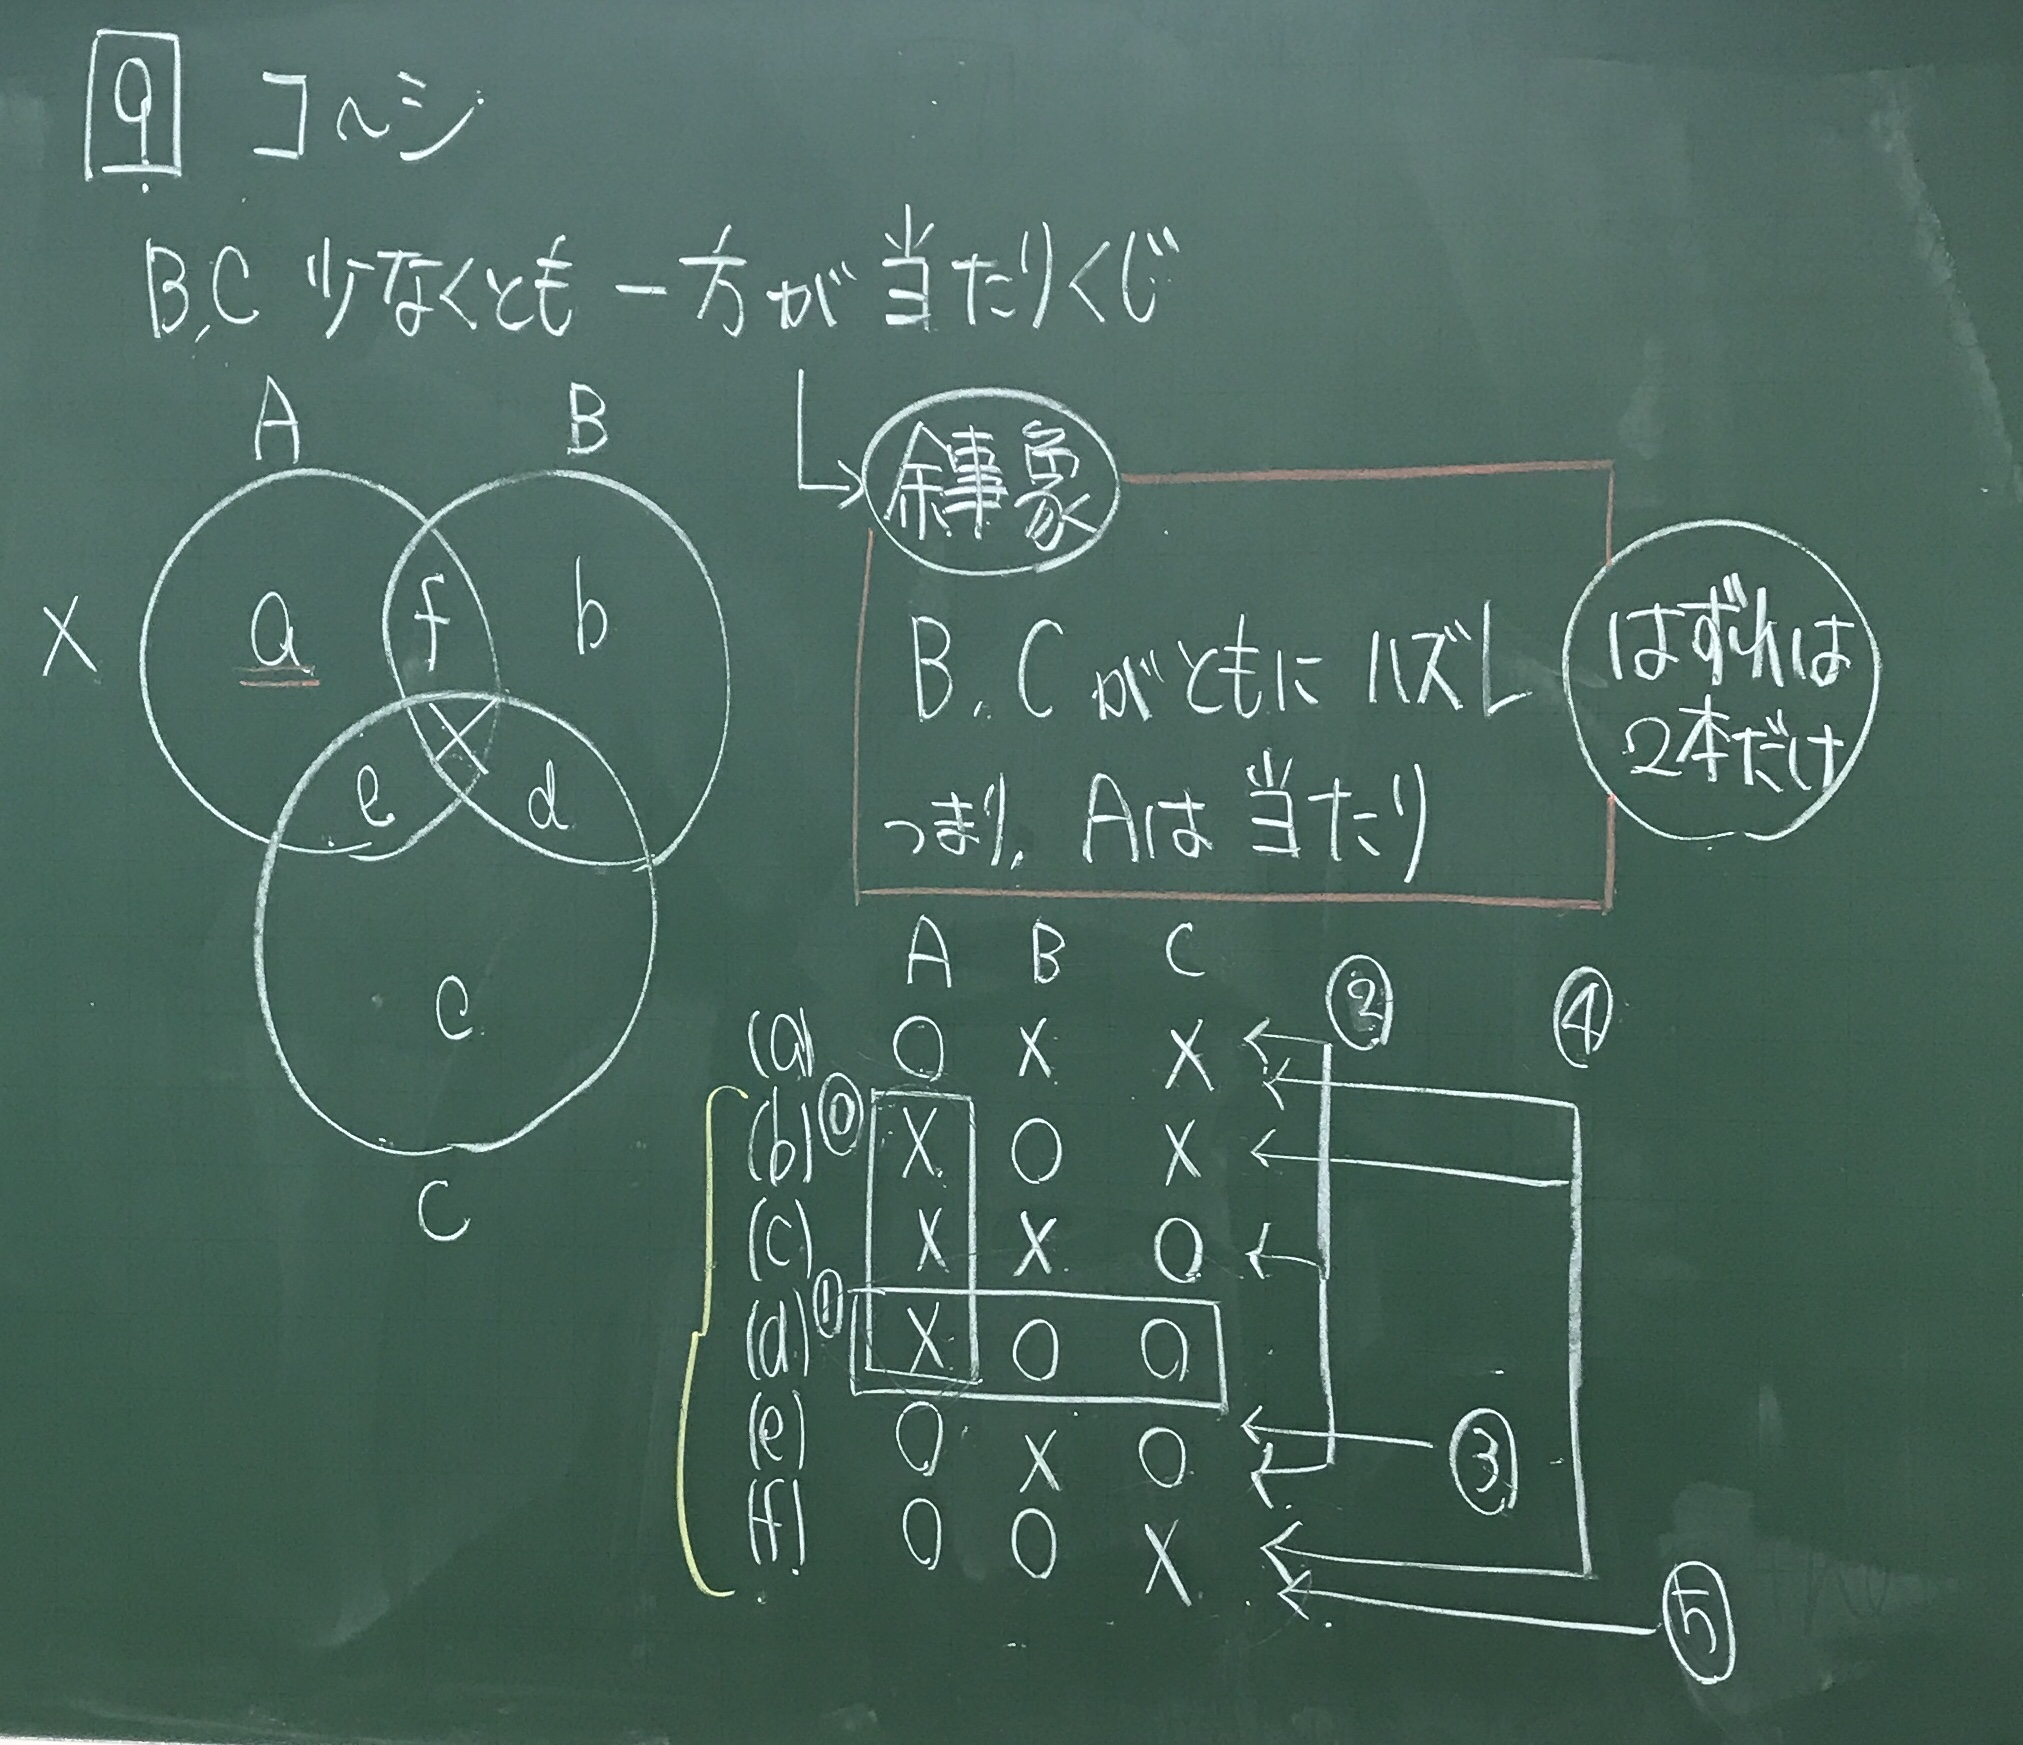 9 コ〜シ
B,C 少なくとも一方が当たりくじ
余事象
B,Cがともにハズレ
つまり、Aは当たり
はずれは
2本だけ
A B
X a f b
× e d
c
C
A B C ② ④
(a) O X X
(b) ⓪ X O X
(c) X X O
(d) ① X O O
(e) O X O ③
(f) O O X
⑤